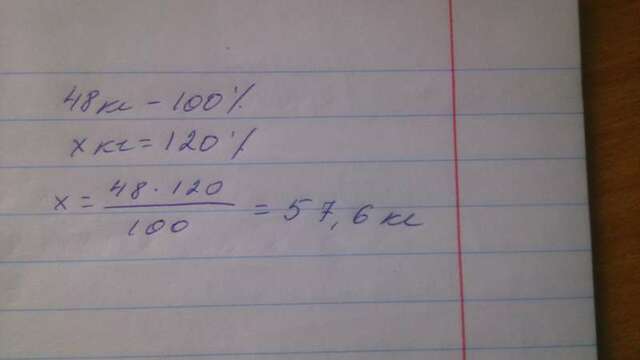 48 кг - 100%
х кг = 120%
х = 48 · 120 / 100 = 57,6 кг